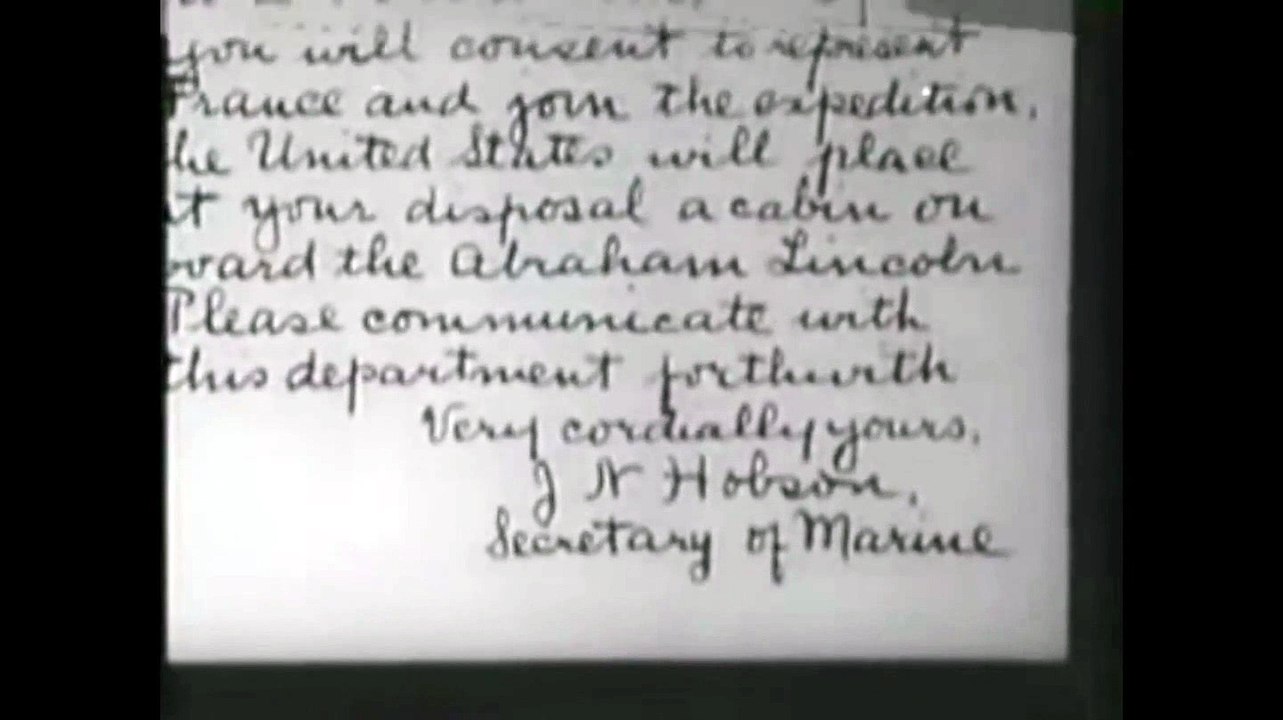 you will consent to represent
France and join the expedition,
the United States will place
at your disposal a cabin on
board the Abraham Lincoln
Please communicate with
this department forthwith
Very cordially yours,
J N Hobson,
Secretary of Marine